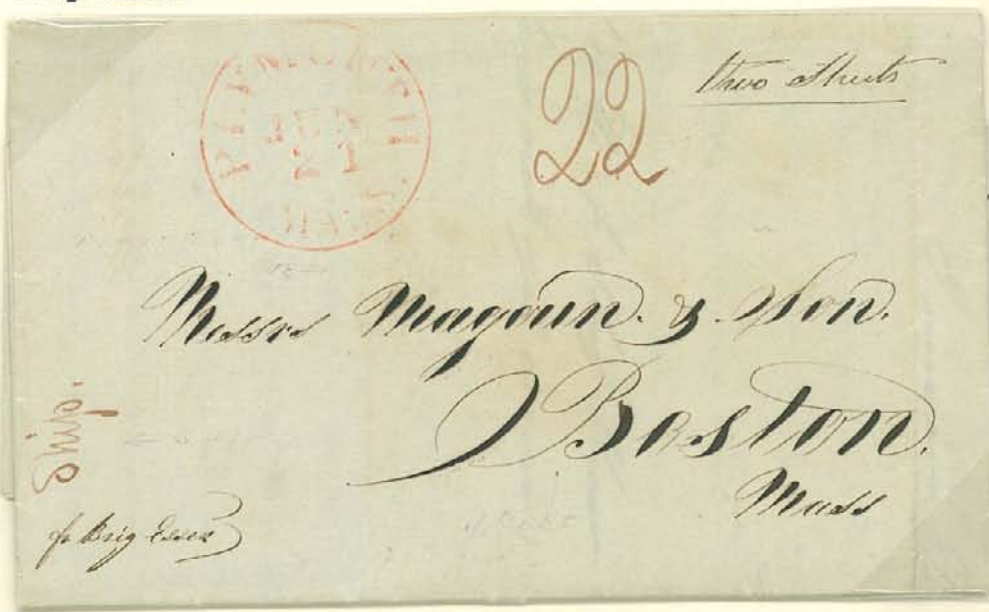 PLYMOUTH
21
MASS.
22
two Sheets
Messrs Magoun. & Son.
Boston.
Mass
Ship.
pr Brig Essex